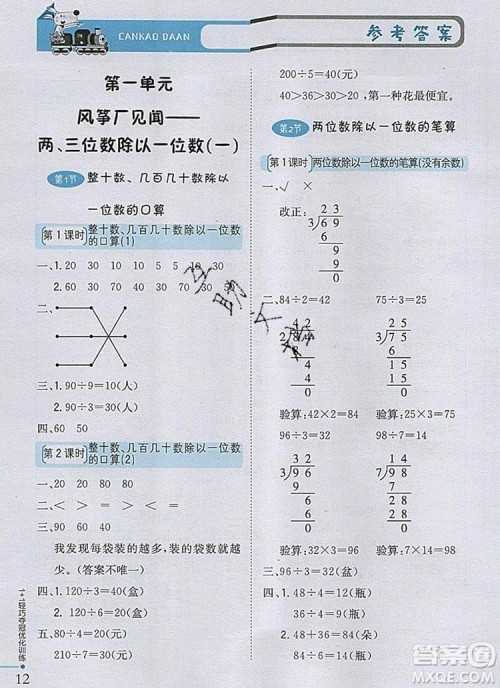 CANKAO DAAN
参考答案
第一单元
风筝厂见闻——
两、三位数除以一位数(一)
第1节 整十数、几百几十数除以
一位数的口算
第1课时 整十数、几百几十数除以一位数
的口算(1)
一、20 30 10 10 5 5 10 30
二、
三、1. 90÷9=10(人)
2. 90÷3=30(人)
四、60 50
第2课时 整十数、几百几十数除以一位数
的口算(2)
一、20 70 60 70 30 70 30
二、< > = = < >
三、
我发现每袋装的越多,装的袋数就越
少。(答案不唯一)
四、1. 120÷3=40(盒)
2. 120÷6=20(盒)
五、80÷4=20(元)
210÷7=30(元)
1+1轻巧夺冠优化训练
12
200÷5=40(元)
40>36>30>20, 第一种花最便宜。
第2节 两位数除以一位数的笔算
第1课时 两位数除以一位数的笔算(没有余数)
一、√ ×
改正:
23
3 69
6
9
9
0
二、84÷2=42 75÷3=25
42
2 84
8
4
4
0
25
3 75
6
15
15
0
验算:42×2=84 验算:25×3=75
96÷3=32 98÷7=14
32
3 96
9
6
6
0
验算:32×3=96
三、96÷3=32(盆)
四、1. 48÷4=12(瓶)
2. 48÷
84÷6=14(瓶)
答案圈
MXQE.COM